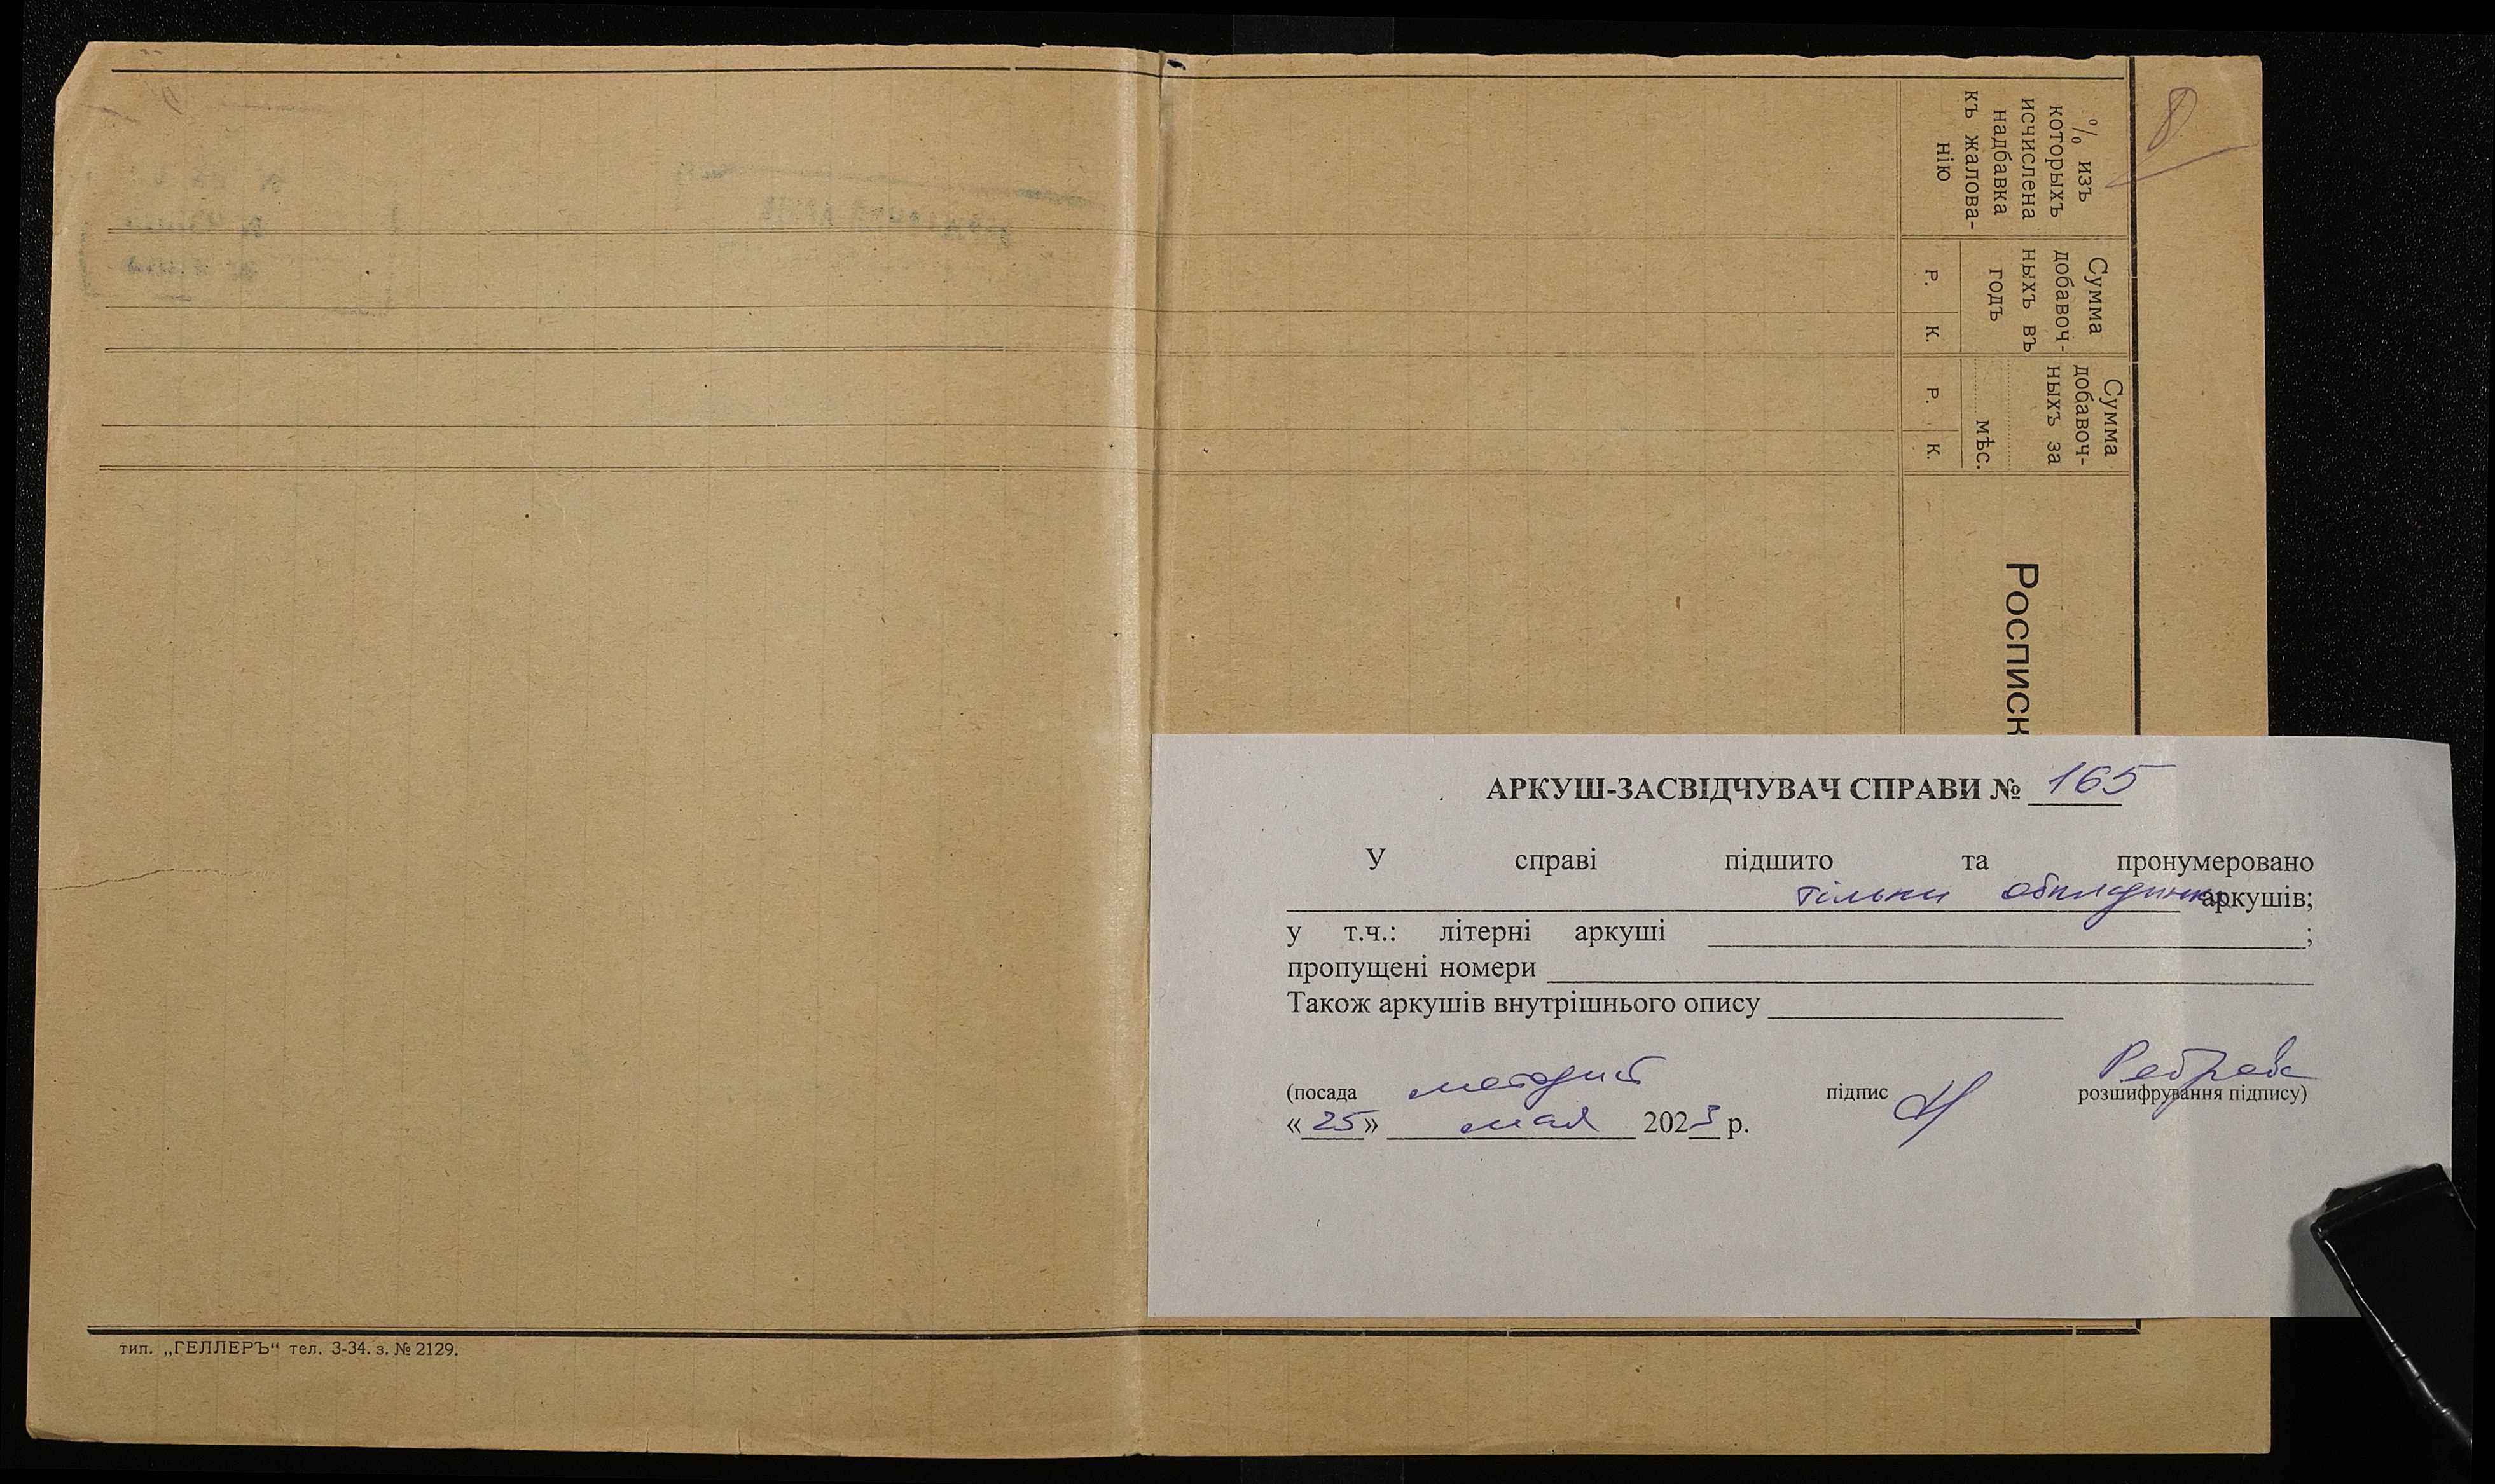 8
% изъ
которыхъ
исчислена
надбавка
къ жалова-
нію
Сумма
добавоч-
ныхъ въ
годъ
Р.
К.
Сумма
добавоч-
ныхъ за
мѣс.
Р.
К.
Росписк
АРКУШ-ЗАСВІДЧУВАЧ СПРАВИ № 165
У справі підшито та пронумеровано
тільки обкладинка аркушів;
у т.ч.: літерні аркуші ;
пропущені номери
Також аркушів внутрішнього опису
методист
(посада підпис розшифрування підпису)
« 25 » мая 2023 р.
тип. „ГЕЛЛЕРЪ“ тел. 3-34. з. № 2129.